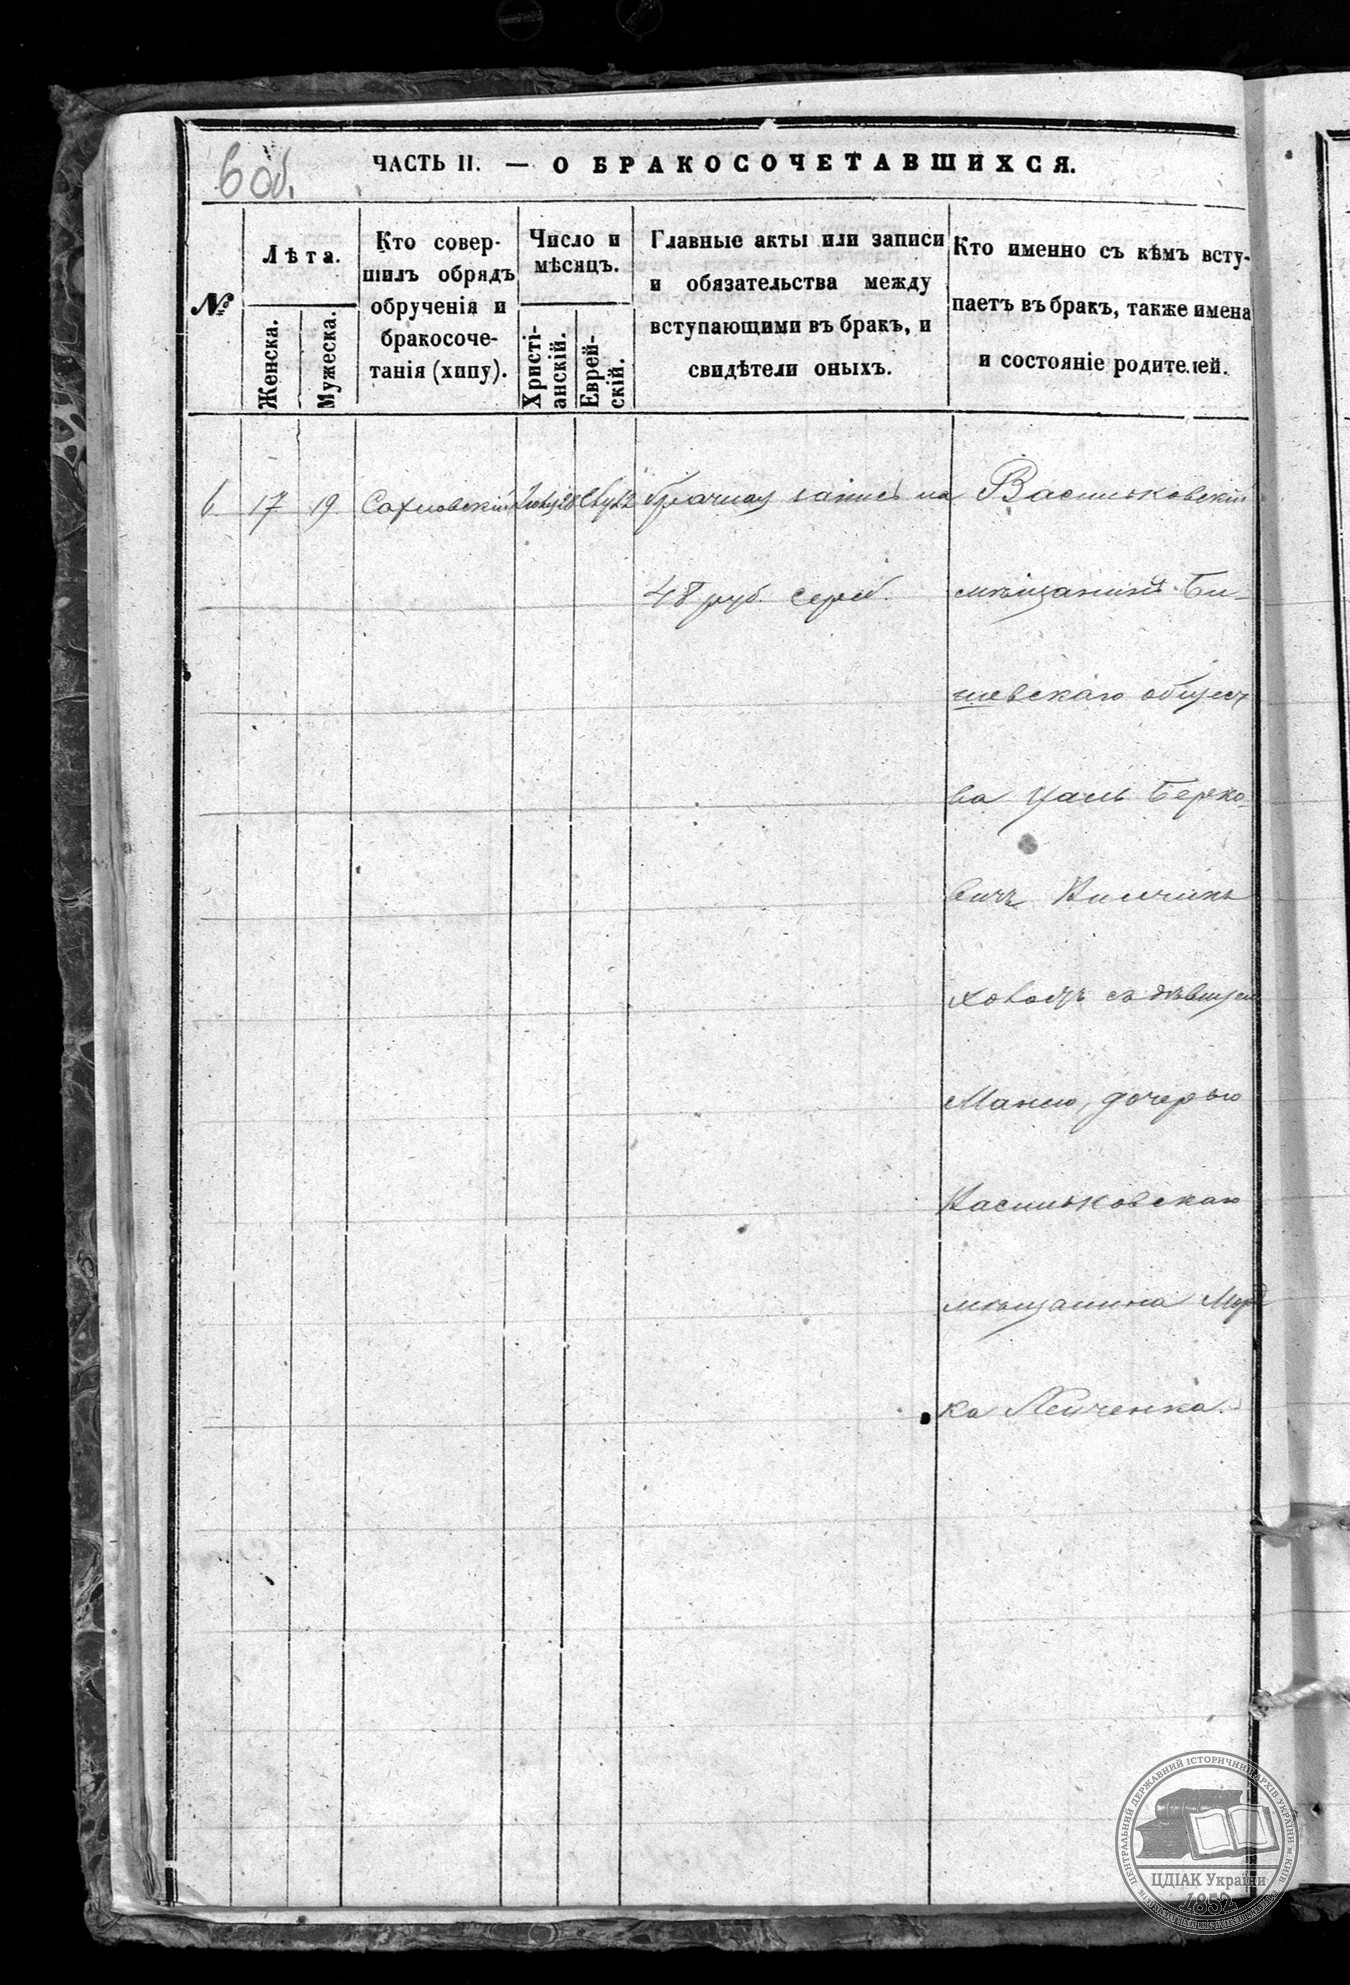 6 об.
ЧАСТЬ II. — О БРАКОСОЧЕТАВШИХСЯ.
№
Лѣта.
Женска.
Мужеска.
Кто совер-
шилъ обрядъ
обрученія и
бракосоче-
танія (хипу).
Число и
мѣсяцъ.
Христі-
анскій.
Еврей-
скій.
Главные акты или записи
и обязательства между
вступающими въ бракъ, и
свидѣтели оныхъ.
Кто именно съ кѣмъ всту-
паетъ въ бракъ, также имена
и состояніе родителей.
6. 17 19. брачная запись на Васильковскій
48 руб. сереб. мѣщанинъ Би-
шевскаго общест
ва Берко-
вичъ
холостъ съ дѣвицею
Манею, дочерью
Васильковскаго
мѣщанина Морд
ка
ЦЕНТРАЛЬНИЙ ДЕРЖАВНИЙ ІСТОРИЧНИЙ АРХІВ УКРАЇНИ м.КИЇВ
ЦДІАК України
1852